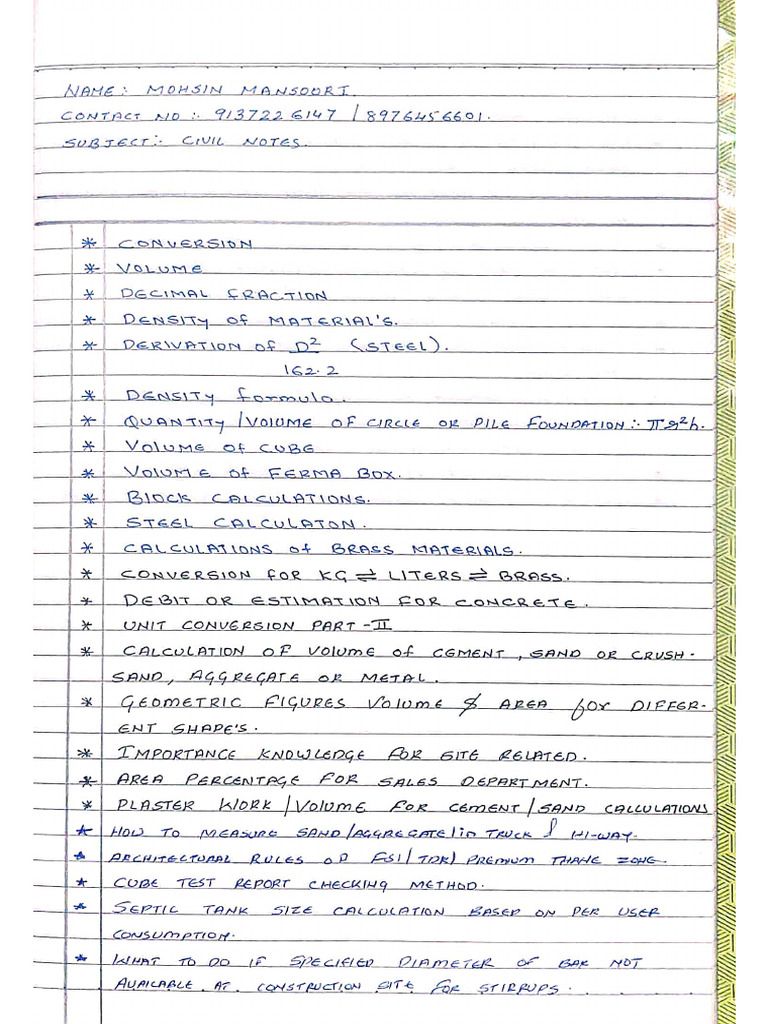 NAME:- MOHSIN MANSOORI.
CONTACT NO :- 9137226147 / 8976456601.
SUBJECT:- CIVIL NOTES.
* CONVERSION
* VOLUME
* DECIMAL FRACTION
* DENSITY OF MATERIAL'S.
* DERIVATION OF D² (STEEL).
162.2
* DENSITY formula.
* QUANTITY / VOLUME OF CIRCLE OR PILE FOUNDATION:- πr²h.
* VOLUME OF CUBE
* VOLUME OF FERMA BOX.
* BLOCK CALCULATIONS.
* STEEL CALCULATON.
* CALCULATIONS OF BRASS MATERIALS.
* CONVERSION FOR KG ⇌ LITERS ⇌ BRASS.
* DEBIT OR ESTIMATION FOR CONCRETE.
* UNIT CONVERSION PART-II
* CALCULATION OF VOLUME OF CEMENT, SAND OR CRUSH-
SAND, AGGREGATE OR METAL.
* GEOMETRIC FIGURES VOLUME & AREA for DIFFER-
ENT SHAPE'S.
* IMPORTANCE KNOWLEDGE FOR SITE RELATED.
* AREA PERCENTAGE FOR SALES DEPARTMENT.
* PLASTER WORK / VOLUME FOR CEMENT / SAND CALCULATIONS
* HOW TO MEASURE SAND/AGGREGATE/IN TRUCK & HI-WAY.
* ARCHITECTURAL RULES OD FSI/TDR/PREMIUM THANE ZONE.
* CUBE TEST REPORT CHECKING METHOD.
* SEPTIC TANK SIZE CALCULATION BASED ON PER USER
CONSUMPTION.
* WHAT TO DO IF SPECIFIED DIAMETER OF BAR NOT
AVAILABLE AT CONSTRUCTION SITE FOR STIRRUPS.